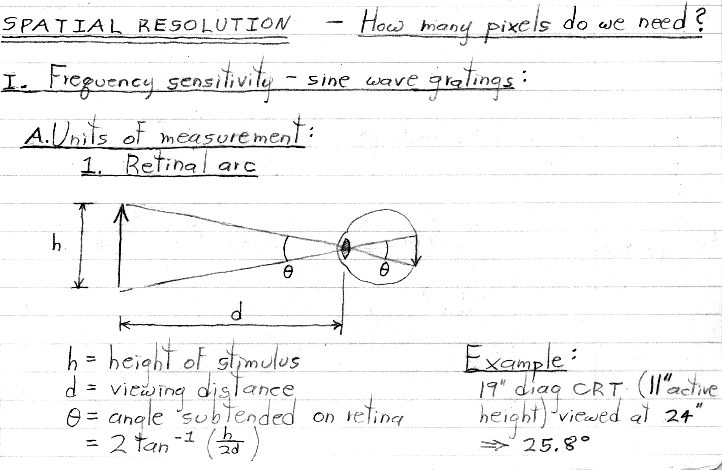 SPATIAL RESOLUTION - How many pixels do we need?
I. Frequency sensitivity - sine wave gratings:
A. Units of measurement:
1. Retinal arc
h
θ θ
d
h = height of stimulus
d = viewing distance
θ = angle subtended on retina
= 2 tan⁻¹ (h/2d)
Example:
19" diag CRT (11" active
height) viewed at 24"
⇒ 25.8°